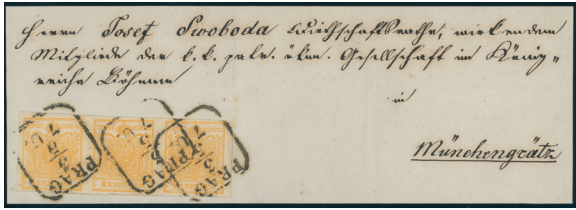 Herrn Josef Swoboda Wirthschaftsrathe, wirkendem
Mitgliede der k. k. patr. ökon. Gesellschaft im König-
reiche Böhmen
in
Münchengrätz
PRAG
PRAG
PRAG